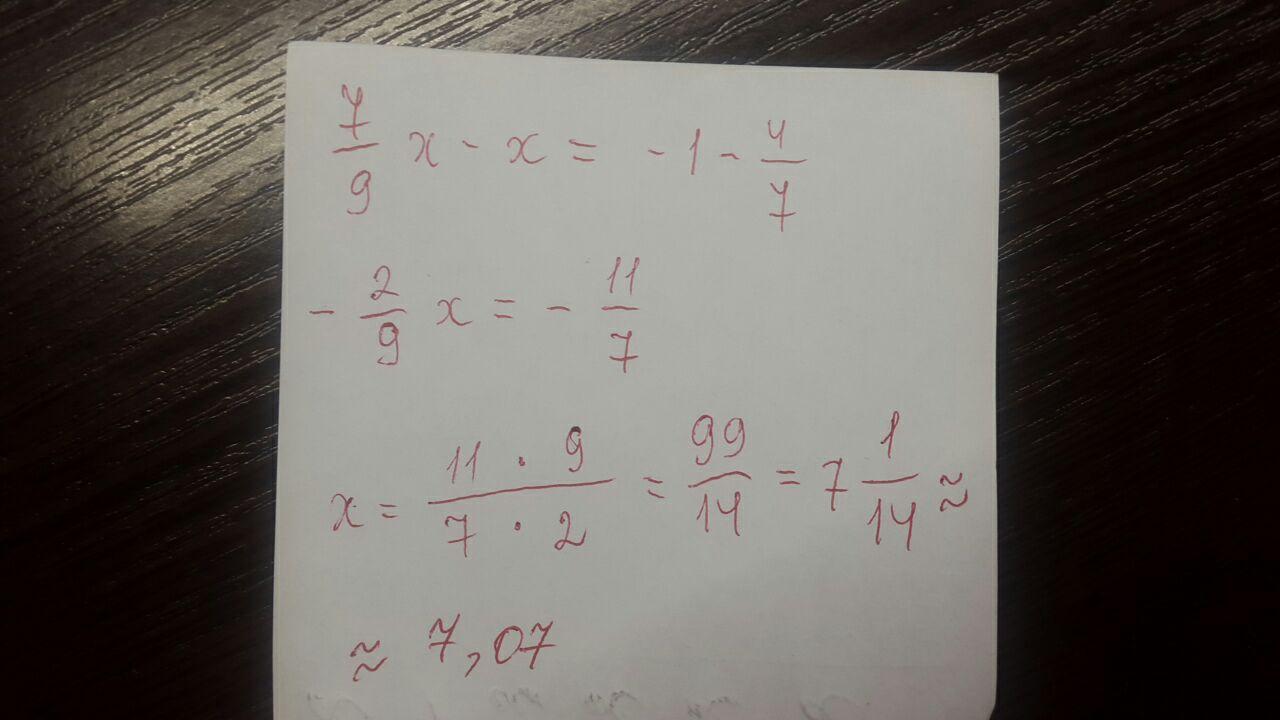 7/9 x - x = -1 - 4/7
- 2/9 x = - 11/7
x = (11 · 9)/(7 · 2) = 99/14 = 7 1/14 ≈
≈ 7,07